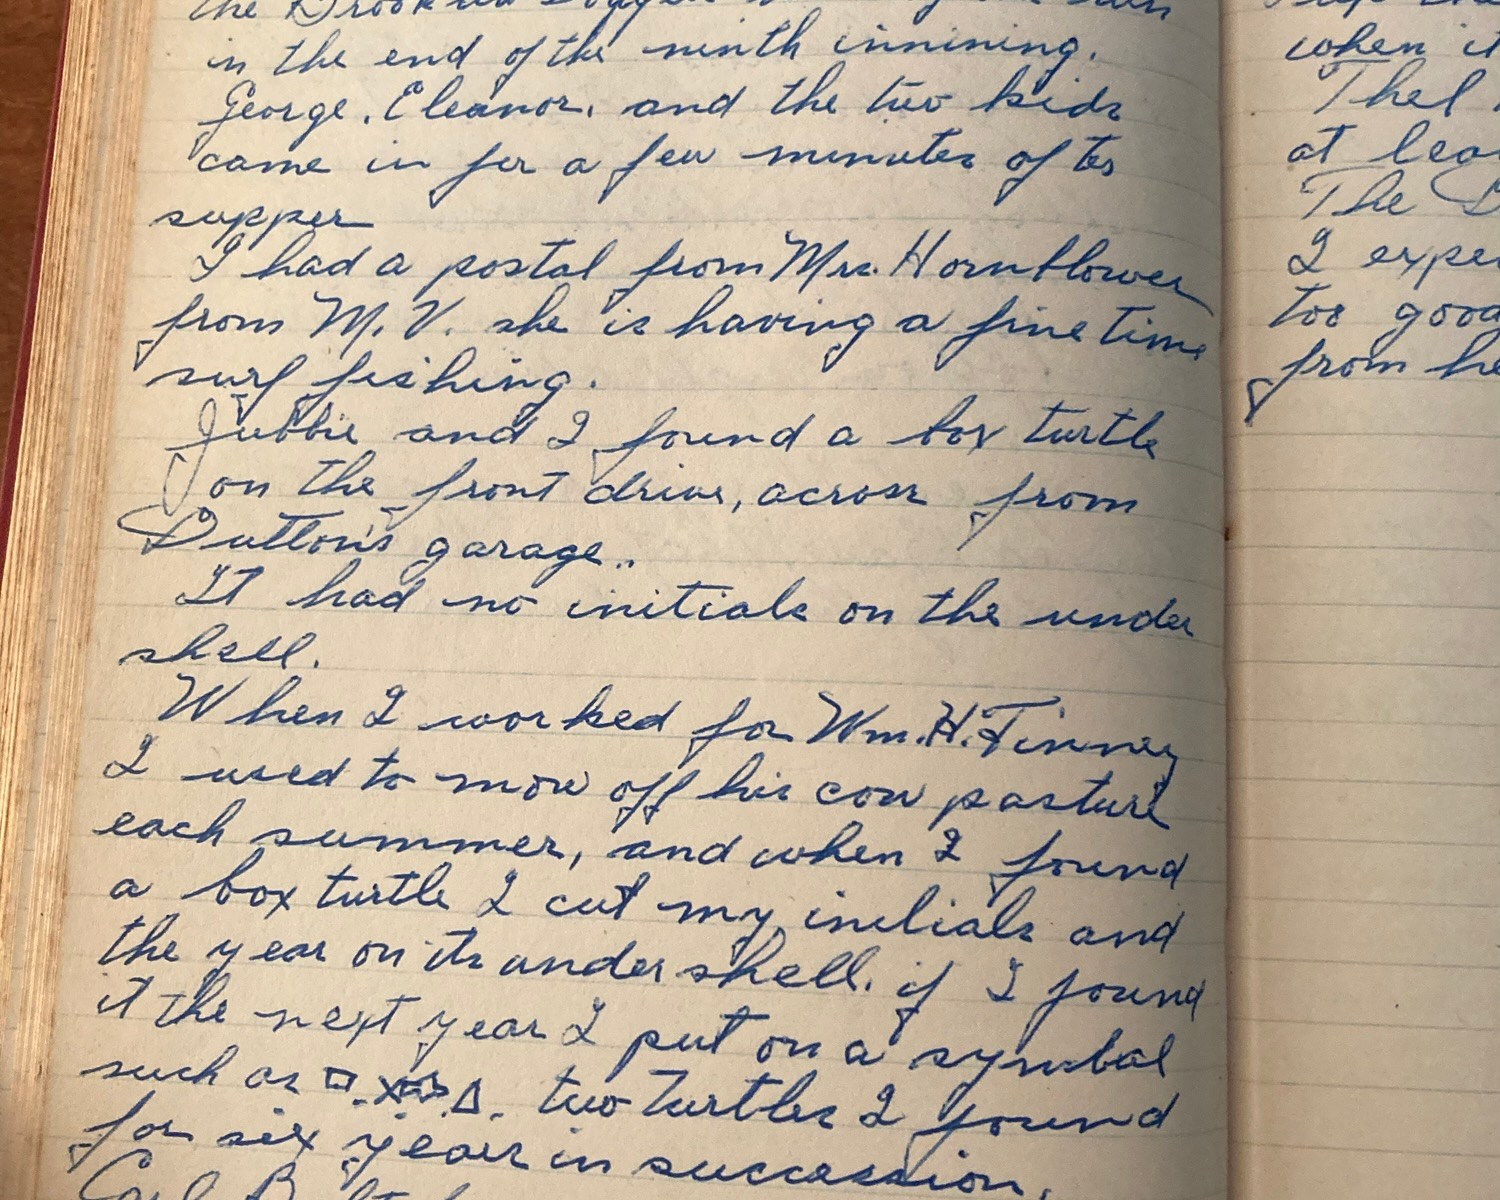 the
in the end of the ninth innining.
George. Eleanor. and the two kids
came in for a few minutes after
supper
I had a postal from Mrs. Hornblower
from M.V. she is having a fine time
surf fishing.
Jubbie and I found a box turtle
on the front drive, across from
Dutton's garage..
It had no initials on the under
shell.
When I worked for Wm. H. Tinney
I used to mow off his cow pasture
each summer, and when I found
a box turtle I cut my initials and
the year on its under shell. if I found
it the next year I put on a symbol
such as □. X Δ. two turtles I found
for six years in succession.
when it
Thel
at lea
The
I expe
too good
from he